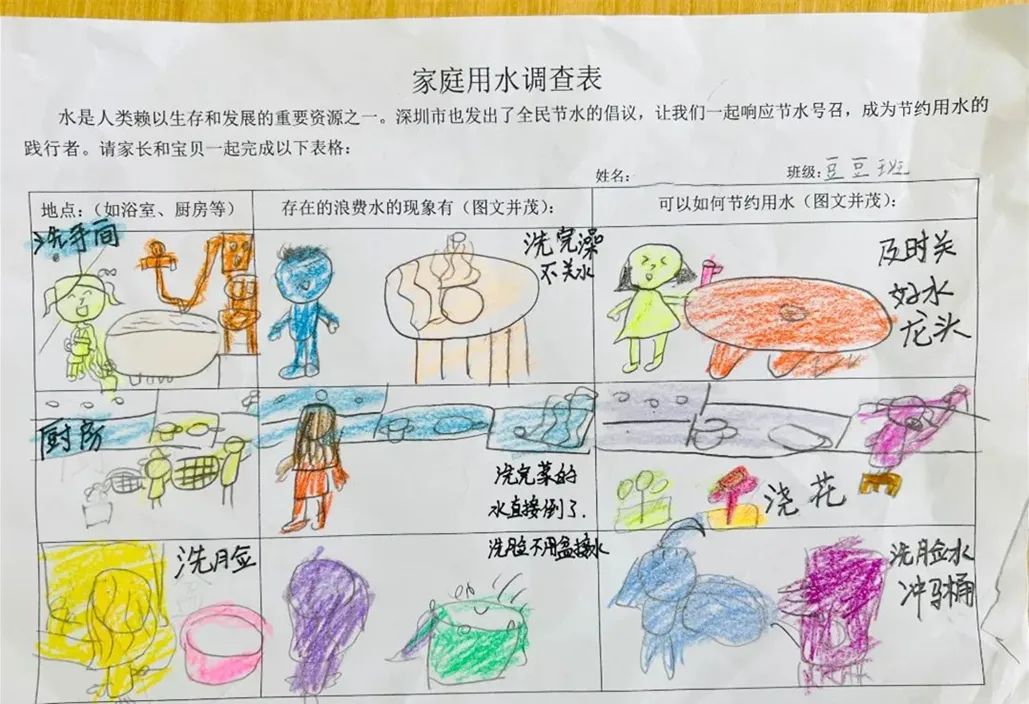 家庭用水调查表
水是人类赖以生存和发展的重要资源之一。深圳市也发出了全民节水的倡议，让我们一起响应节水号召，成为节约用水的
践行者。请家长和宝贝一起完成以下表格：
姓名： 班级：豆豆班
地点：（如浴室、厨房等） 存在的浪费水的现象有（图文并茂）： 可以如何节约用水（图文并茂）：
洗手间
洗完澡
不关水
及时关
好水
龙头
厨房
洗完菜的
水直接倒了.
浇花
洗脸
洗脸不用盆接水
洗脸水
冲马桶